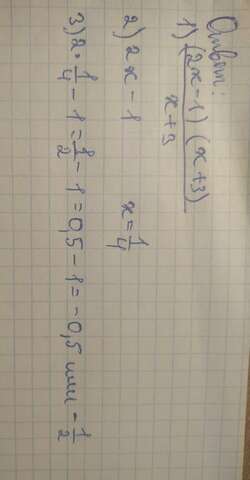 Ответ:
1) (2x-1) (x+3) / x+3
2) 2x - 1 x = 1/4
3) 2 · 1/4 - 1 = 1/2 - 1 = 0,5 - 1 = - 0,5 или - 1/2